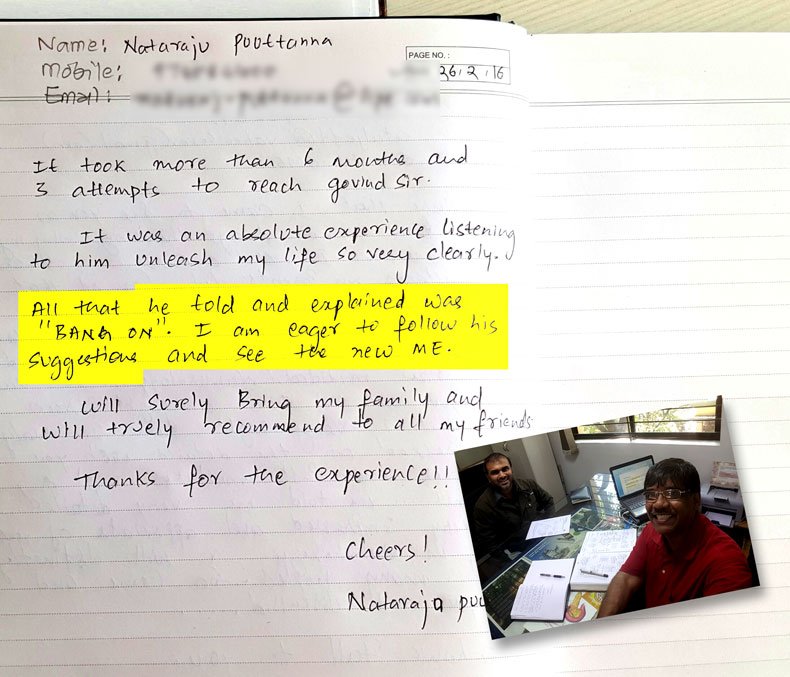 Name: Nataraju Puuttanna
PAGE NO. :
Mobile:
26.2.16
Email:
It took more than 6 months and
3 attempts to reach govind Sir.
It was an absolute experience listening
to him unleash my life so very clearly.
All that he told and explained was
"BANG ON". I am eager to follow his
suggestions and see the new ME.
Will surely Bring my family and
will truely recommend to all my friends
Thanks for the experience!!
Cheers!
Nataraja